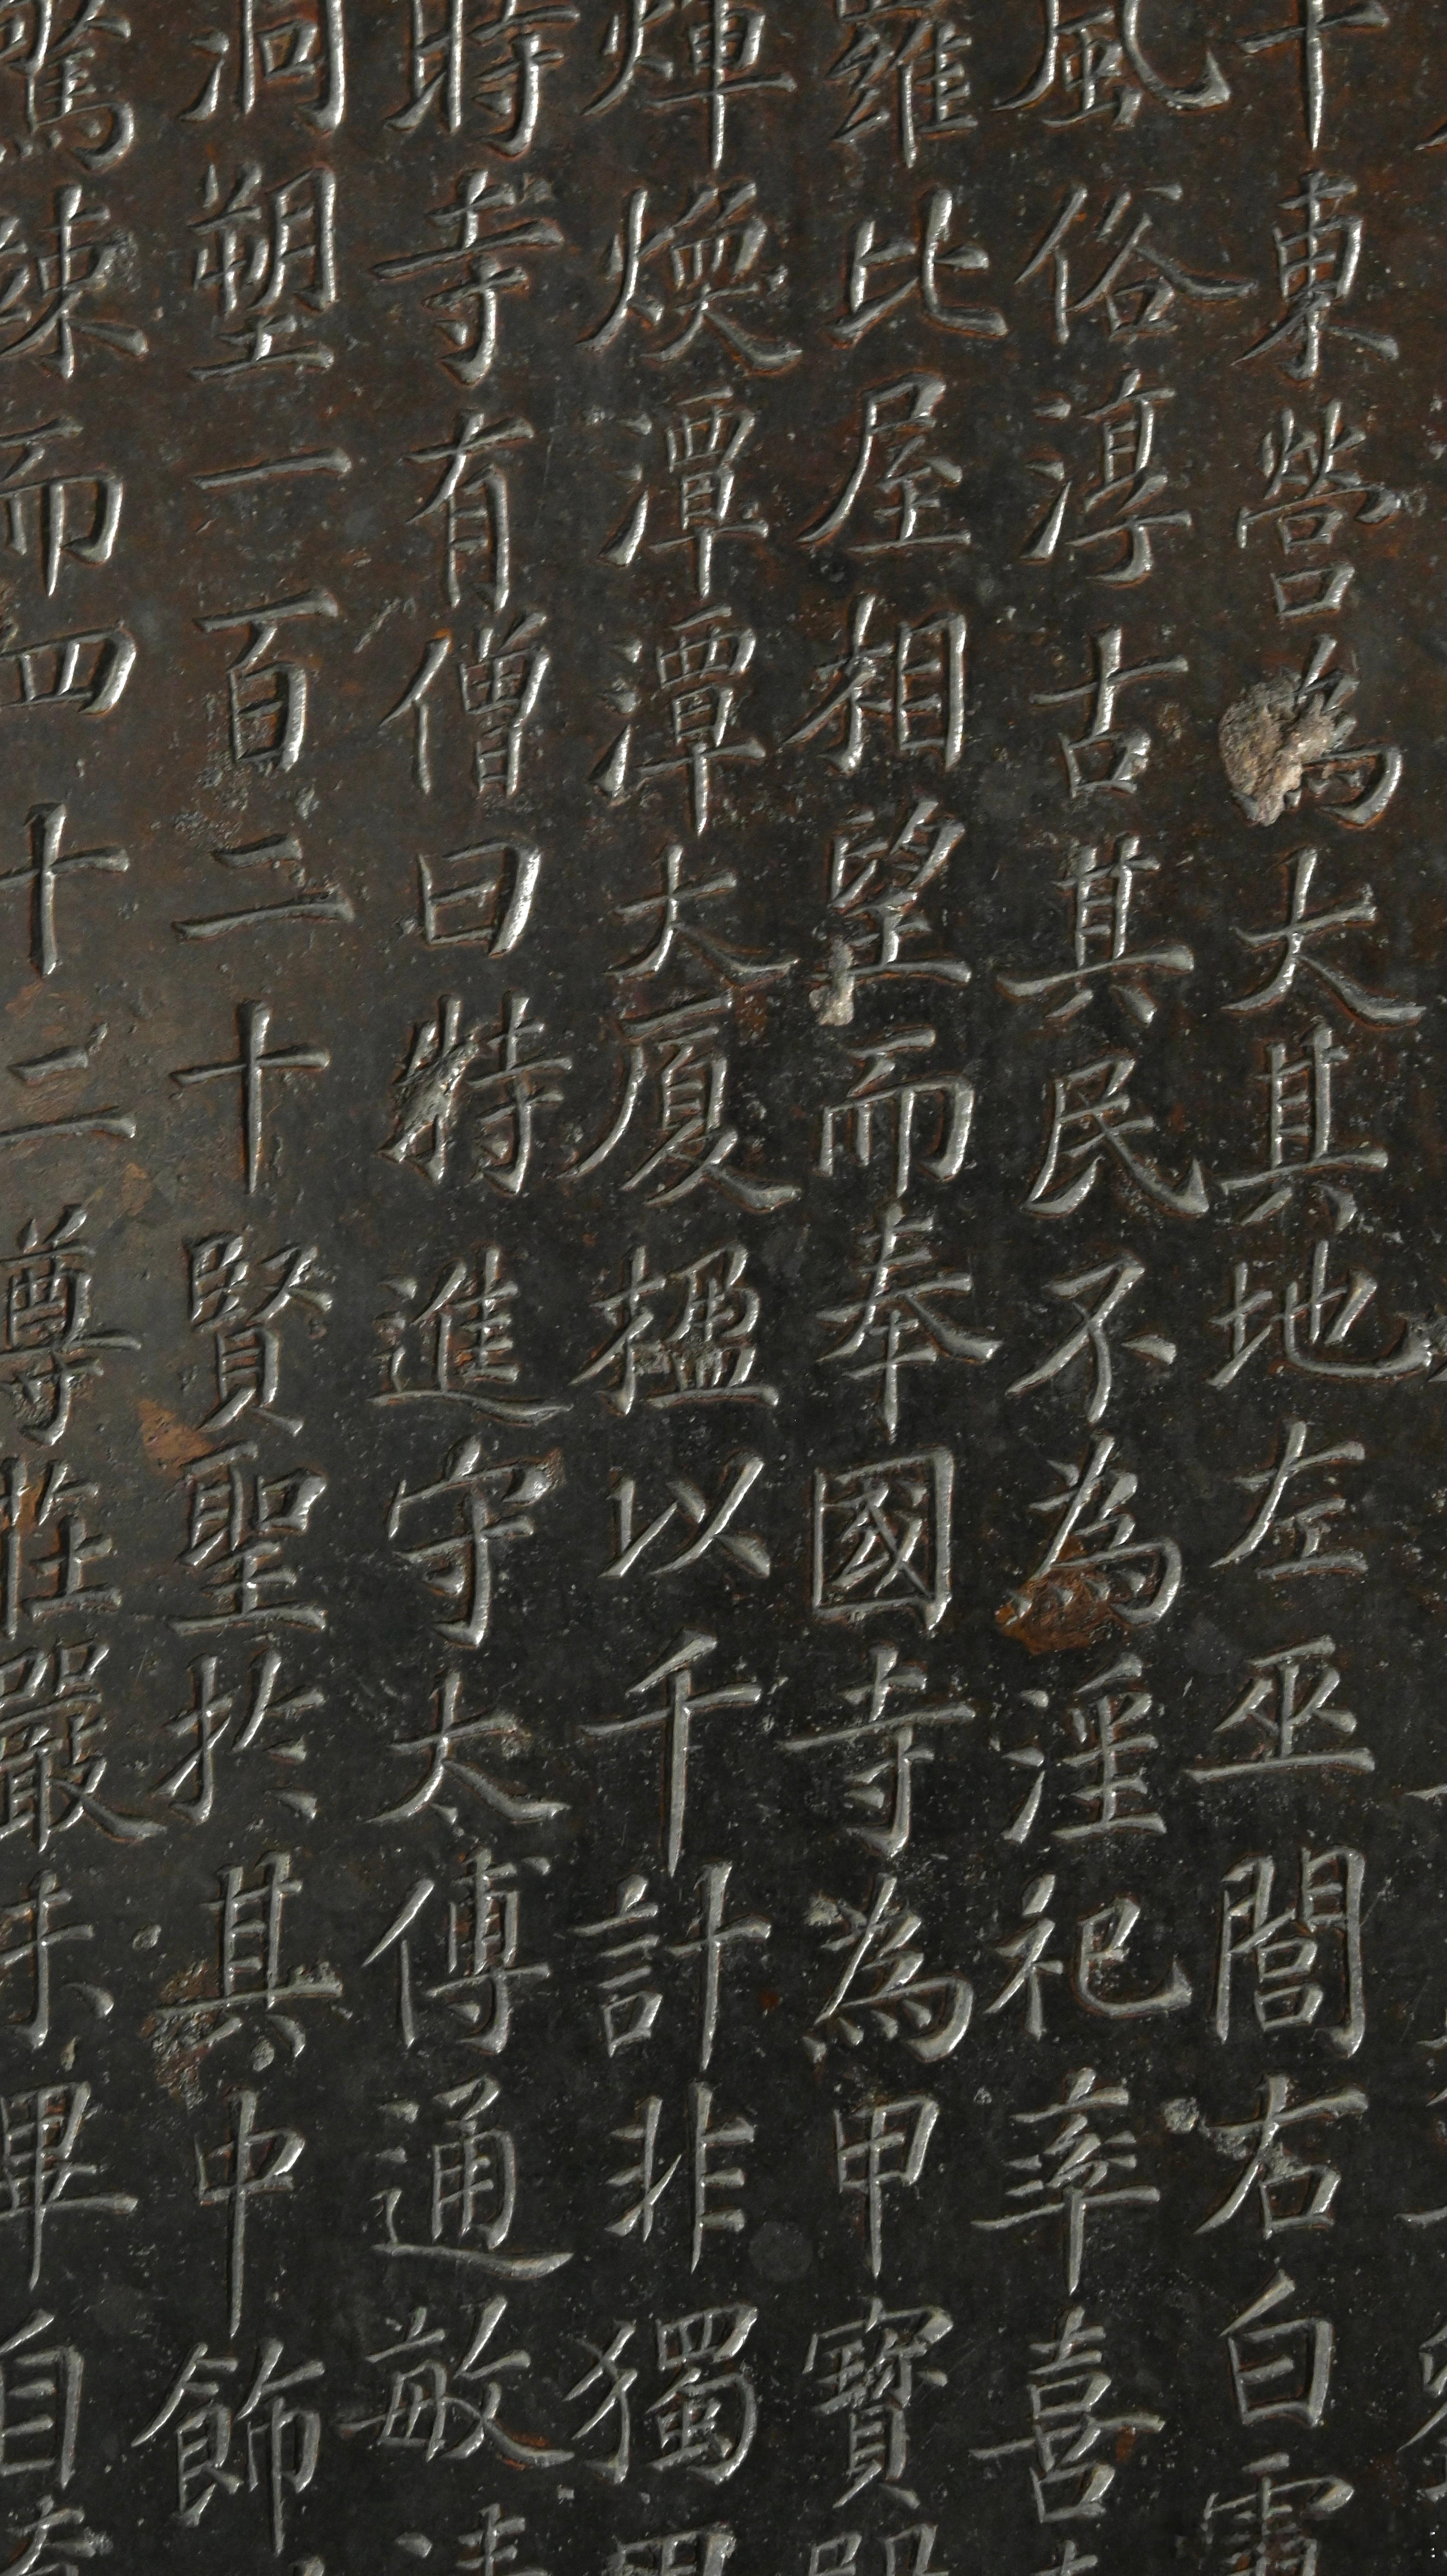 十東營為大其地左巫閭右白霫
風俗淳古其民不為淫祀率喜
羅比屋相望而奉國寺為甲寶殿
煇煥潭潭大廈楹以千計非獨甲
時寺有僧曰特進守太傅通敏清
洞塑一百二十賢聖於其中飾
驚竦而四十二尊莊嚴未畢自